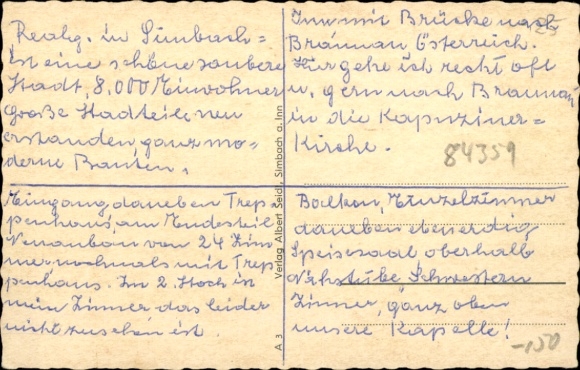 Realg. in Simbach=
ist eine schöne saubere
Stadt, 8,000 Einwohner
große Stadtteile neu
erstanden, ganz mo=
derne Bauten.
Inn mit Brücke nach
Braunau Österreich.
Hier gehe ich recht oft
u. gern nach Braunau
in die Kapuziner=
Kirche.
84359
Eingang, daneben Trep
penhaus, am Endesteil
Neuanbau von 24 Zim
mer nochmals mit Trep
penhaus. Im 2. Stock ist
mein Zimmer, das leider
nicht zu sehen ist.
Balkon, Einzelzimmer
daneben ebenerdig
Speisesaal oberhalb
Nähstube Schwestern
Zimmer, ganz oben
unsere Kapelle!
-150
A 3 Verlag Albert Seidl, Simbach a. Inn